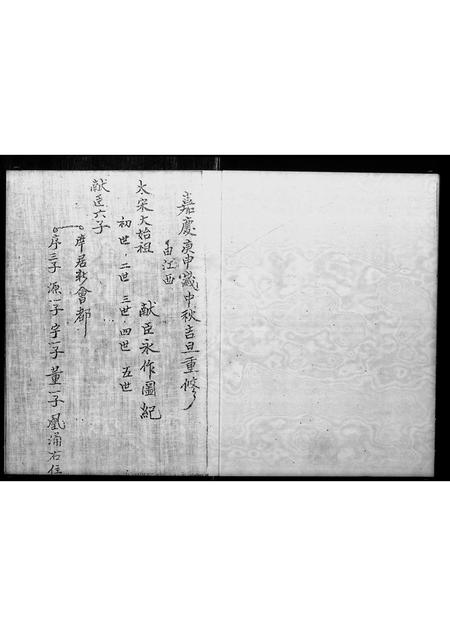 嘉慶庚申歲中秋吉旦重修
由江西
太宋大始祖 献臣永作圖紀
初世 二世 三世 四世 五世
献臣六子
居新會都
序三子 源一子 宇一子 董一子 凰涌右住